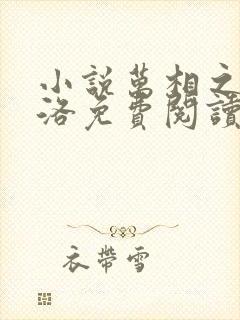 小說萬相之
洛免費閱讀
衣帶雪